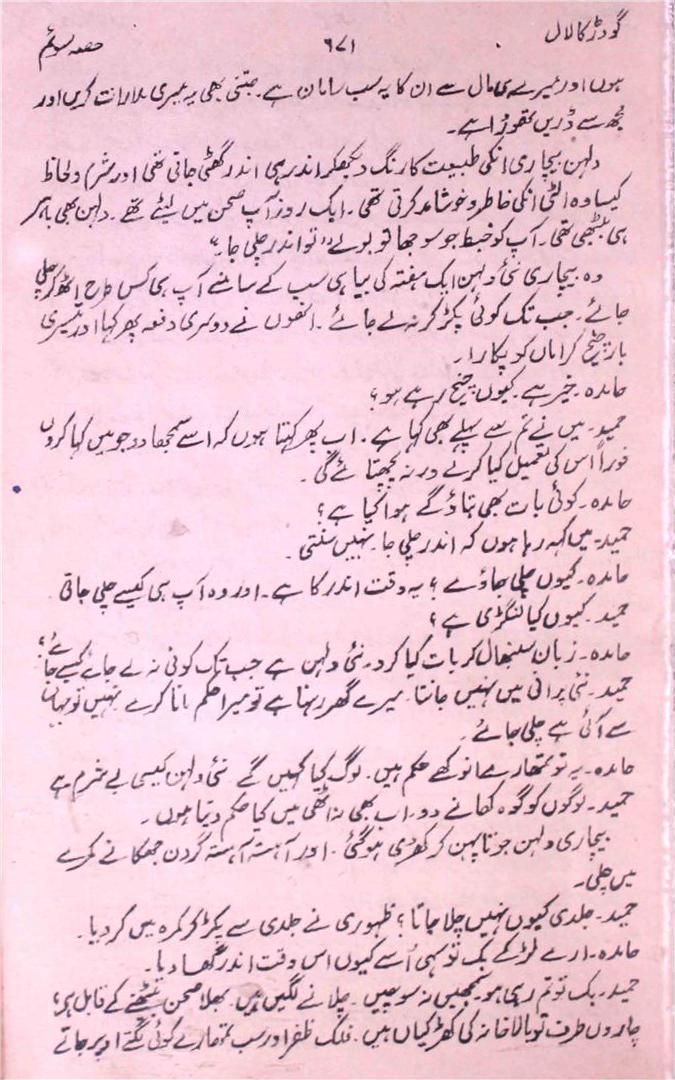 گودڑ کا لال ۶۷۱ حصہ سوئم
ہوں اور میرے ہی مال سے ان کا یہ سب سامان ہے۔ جتنی بھی یہ میری مدارات کریں اور
مجھ سے ڈریں تھوڑا ہے۔
دلہن بیچاری انکی طبیعت کا رنگ دیکھکر اندر ہی اندر گھٹی جاتی تھی اور شرم و لحاظ
کیسا وہ الٹی انکی خاطر و خوشامد کرتی تھی۔ ایک روز آپ صحن میں لیٹے تھے۔ دلہن بھی باہر
ہی بیٹھی تھی۔ آپ کو خبط جو سوجھا تو بولے "تو اندر چلی جا۔"
وہ بیچاری نئی دلہن ایک ہفتہ کی بیاہی سب کے سامنے آپ ہی کس طرح اٹھ کر چلی
جائے۔ جب تک کوئی پکڑ کر نہ لے جائے۔ انھوں نے دوسری دفعہ پھر کہا اور تیسری
بار چیخ کر اماں کو پکارا۔
حامدہ۔ خیر ہے۔ کیوں چیخ رہے ہو؟
حمید۔ میں نے تم سے پہلے بھی کہا ہے۔ اب پھر کہتا ہوں کہ اسے سمجھا دو جو میں کہا کروں
فوراً اس کی تعمیل کیا کرے ورنہ پچھتائے گی۔
حامدہ۔ کوئی بات بھی بتاؤ گے ہوا کیا ہے؟
حمید۔ میں کہہ رہا ہوں کہ اندر چلی جا۔ نہیں سنتی۔
حامدہ۔ کیوں چلی جاوے؟ یہ وقت اندر کا ہے۔ اور وہ آپ ہی کیسے چلی جاتی
حمید۔ کیوں کیا لنگڑی ہے؟
حامدہ۔ زبان سنبھال کر بات کیا کرو۔ نئی دلہن ہے جب تک کوئی نہ لے جائے کیسے جائے؟
حمید۔ نئی پرانی میں نہیں جانتا۔ میرے گھر رہنا ہے تو میرا حکم مانا کرے نہیں تو جہاں
سے آئی ہے چلی جائے۔
حامدہ۔ یہ تو تمھارے انوکھے حکم ہیں۔ لوگ کیا کہیں گے نئی دلہن کیسی بے شرم ہے
حمید۔ لوگوں کو گوہ کھانے دو۔ اب بھی نہ اٹھی میں کیا حکم دیتا ہوں۔
بیچاری دلہن جوتا پہن کر کھڑی ہو گئی۔ اور آہستہ آہستہ گردن جھکائے کمرے
میں چلی۔
حمید۔ جلدی کیوں نہیں چلا جاتا؟ ظہوری نے جلدی سے پکڑ کر کمرہ میں کر دیا۔
حامدہ۔ ارے لڑکے بک تو سہی اُسے کیوں اس وقت اندر گھسا دیا۔
حمید۔ بک تو تم رہی ہو سمجھیں نہ سوچیں۔ چلانے لگیں ہیں۔ بھلا صحن بیٹھنے کے قابل ہے؟
چاروں طرف تو بالا خانہ کی کھڑکیاں ہیں۔ فلک ظفر اور سب تمھارے اوپر جاتے